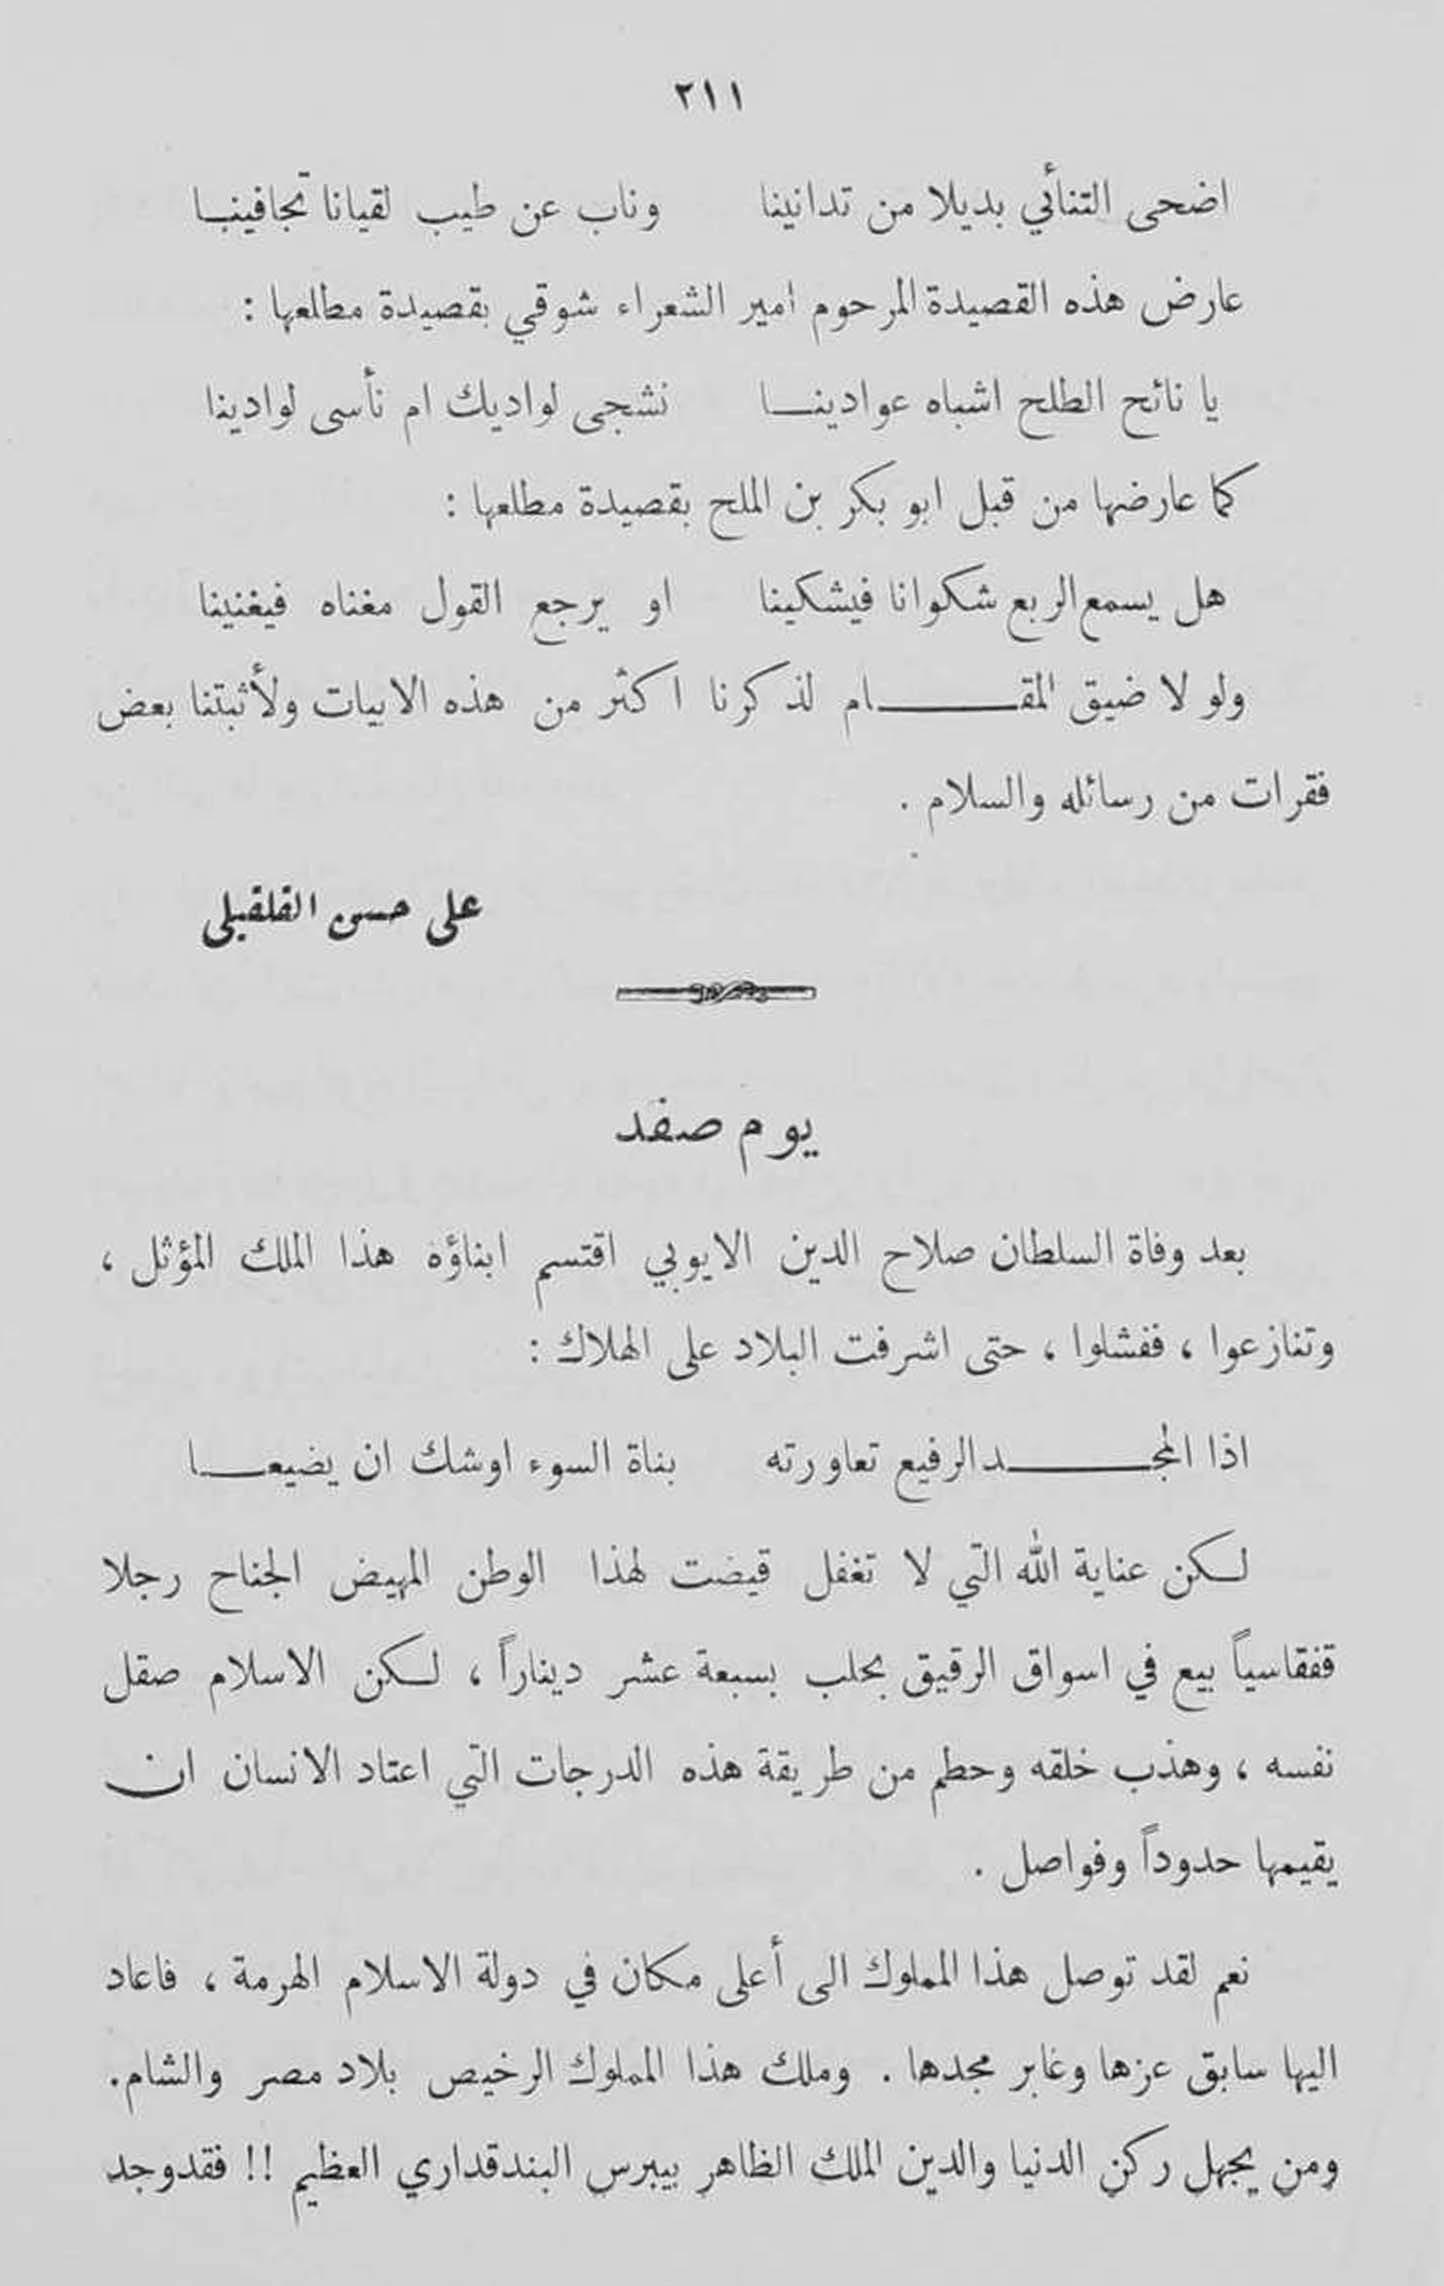 ٢١١
اضحى التنأئي بديلا من تدانينا وناب عن طيب لقيانا تجافينا
عارض هذه القصيدة المرحوم امير الشعراء شوقي بقصيدة مطلعها :
يا نائح الطلح اشباه عوادينا نشجى لواديك ام نأسى لوادينا
كما عارضها من قبل ابو بكر بن الملح بقصيدة مطلعها :
هل يسمع الربع شكوانا فيشكينا او يرجع القول مغناه فيغنينا
ولو لا ضيق المقام لذكرنا اكثر من هذه الابيات ولأثبتنا بعض
فقرات من رسائله والسلام .
على حسن القلقيلى
يوم صفد
بعد وفاة السلطان صلاح الدين الايوبي اقتسم ابناؤه هذا الملك المؤثل ،
وتنازعوا ، ففشلوا ، حتى اشرفت البلاد على الهلاك :
اذا المجد الرفيع تعاورته بناة السوء اوشك ان يضيعا
لكن عناية الله التي لا تغفل قيضت لهذا الوطن المهيض الجناح رجلا
قفقاسياً بيع في اسواق الرقيق بحلب بسبعة عشر ديناراً ، لكن الاسلام صقل
نفسه ، وهذب خلقه وحطم من طريقة هذه الدرجات التي اعتاد الانسان ان
يقيمها حدوداً وفواصل .
نعم لقد توصل هذا المملوك الى أعلى مكان في دولة الاسلام الهرمة ، فاعاد
اليها سابق عزها وغابر مجدها . وملك هذا المملوك الرخيص بلاد مصر والشام.
ومن يجهل ركن الدنيا والدين الملك الظاهر بيبرس البندقداري العظيم !! فقد وجد